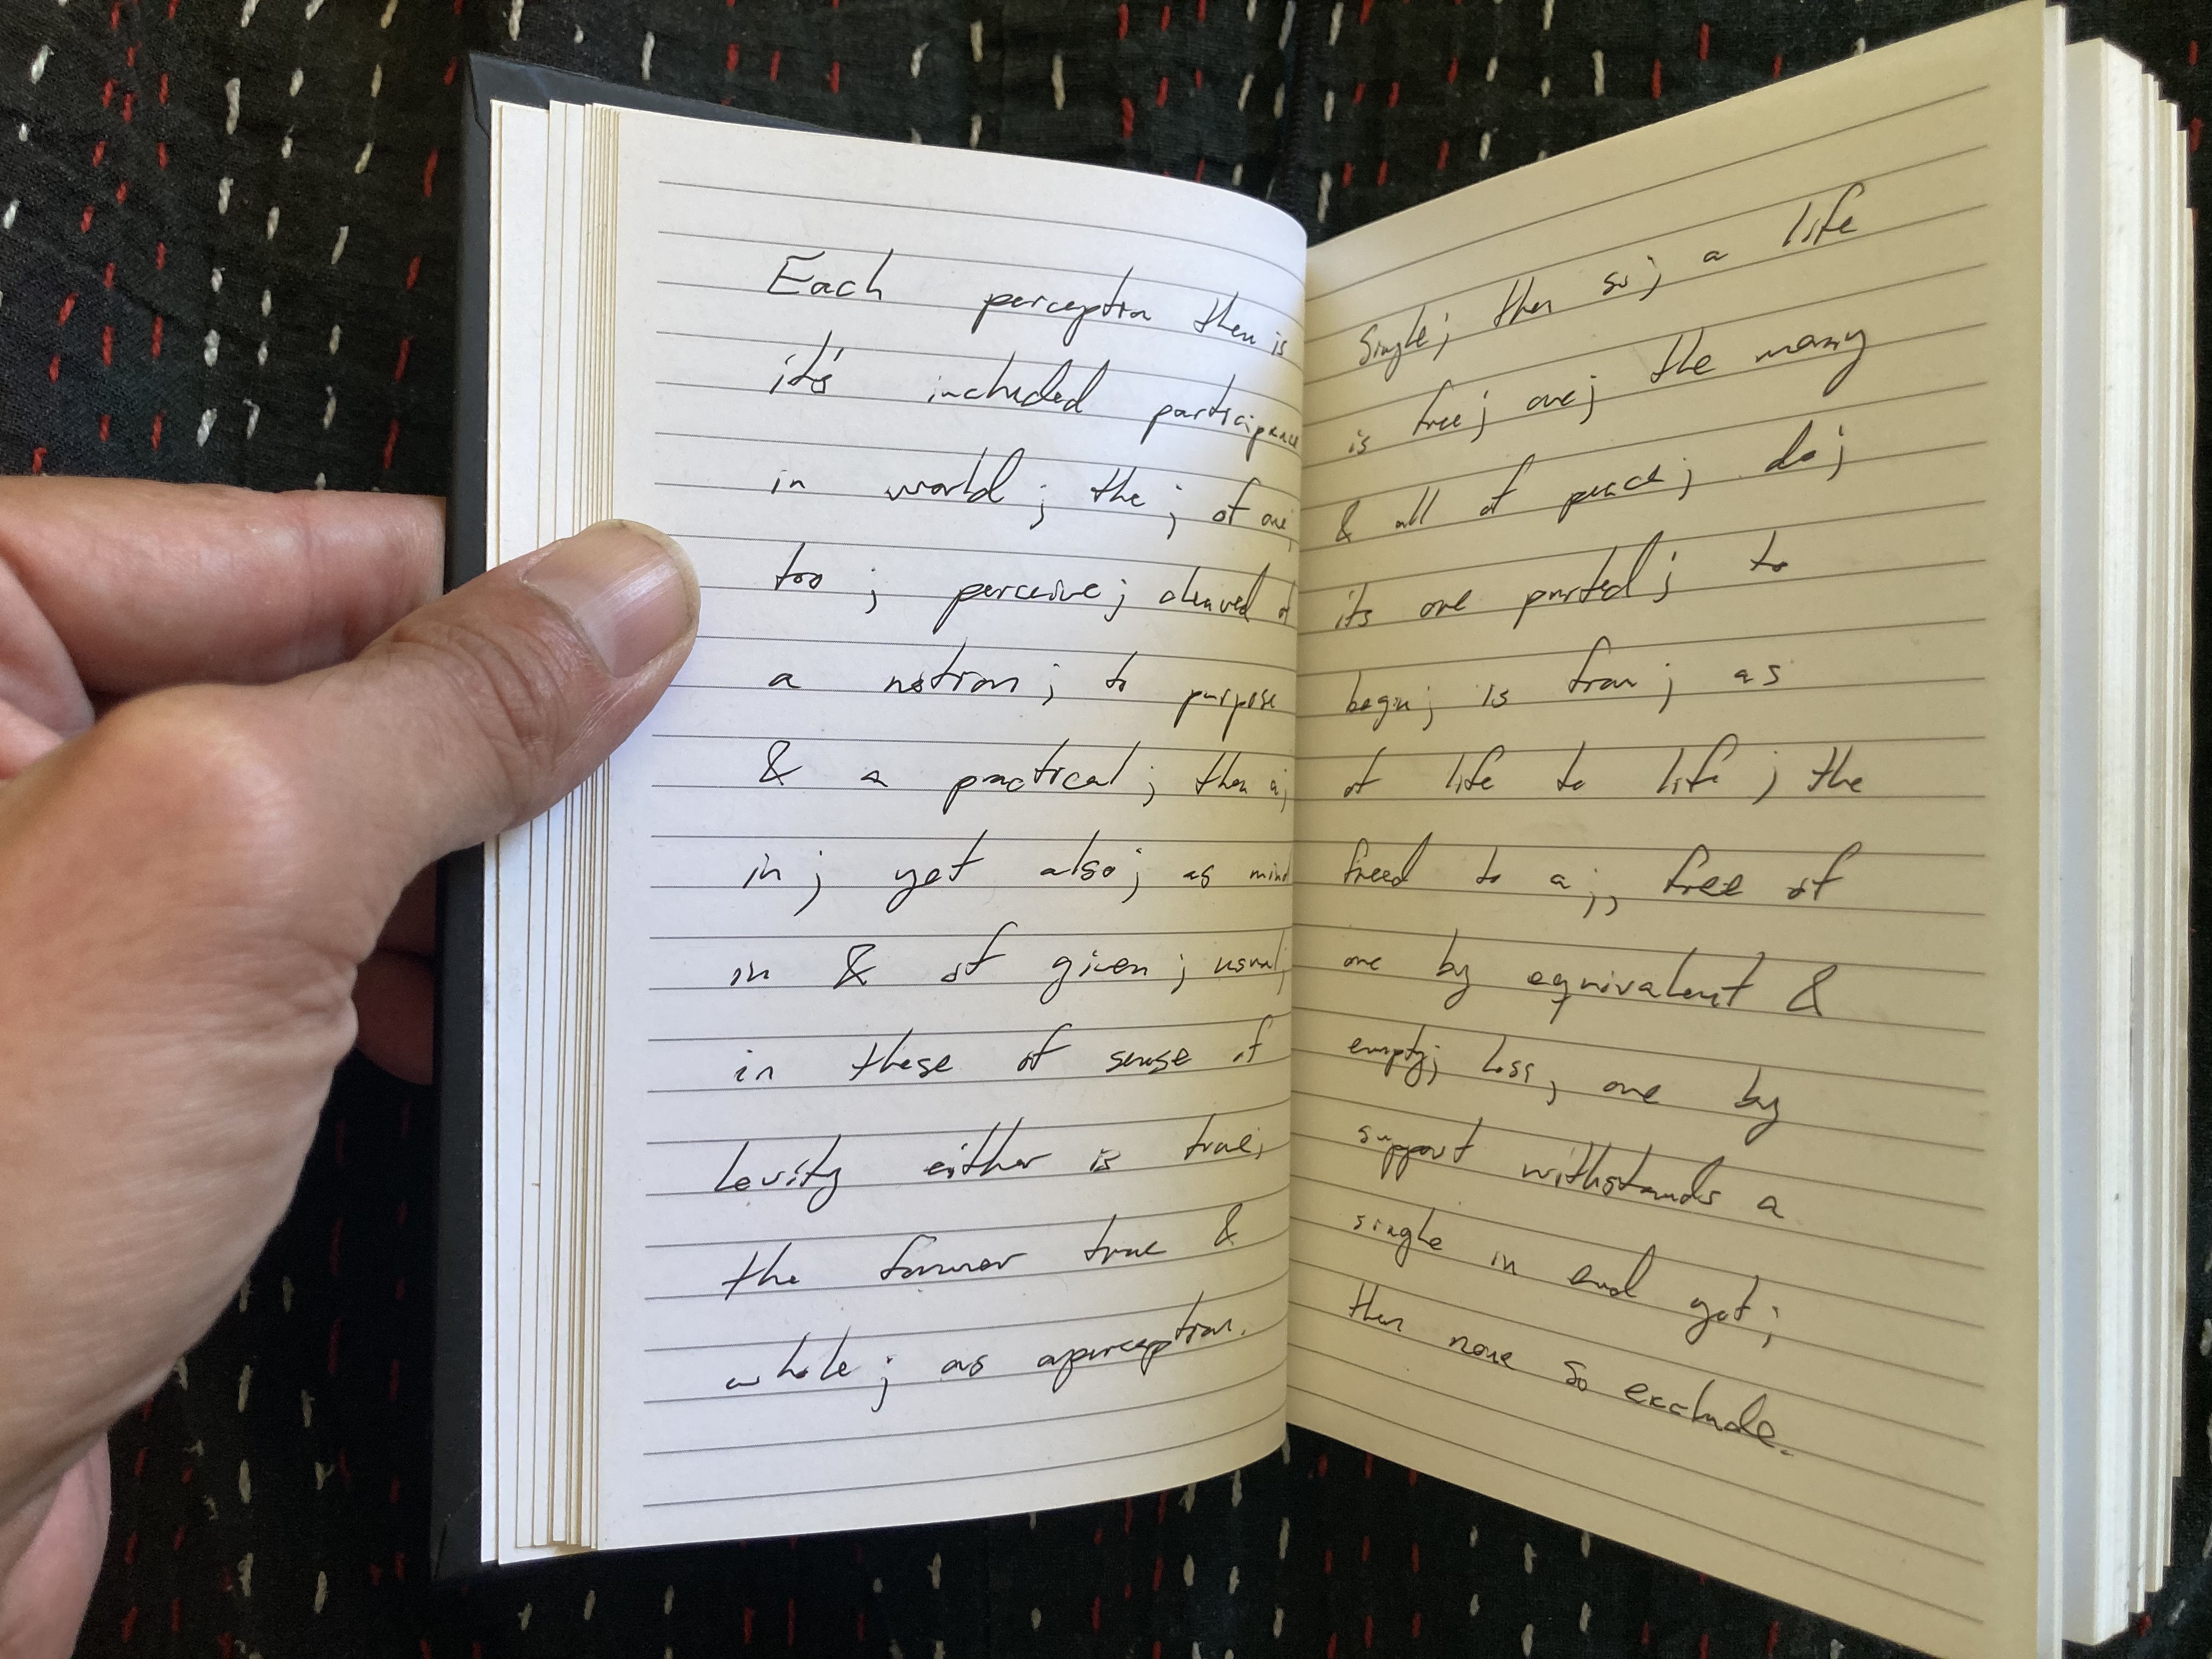 Each perception then is
it's included participance
in world ; the ; of one;
too ; perceive ; cleaved of
a notion ; to purpose
& a practical ; then a;
in ; yet also ; as mind
in & of given ; usual;
in these of sense if
levity either is true;
the former true &
whole ; as aperception.
single ; then so ; a life
is free ; one ; the many
& all of peace ; do ;
its one parted ; to
begin ; is from ; as
of life to life ; the
freed to a ; , free of
one by equivalent &
empty; loss, one by
support withstands a
single in end yet ;
then none so exclude.